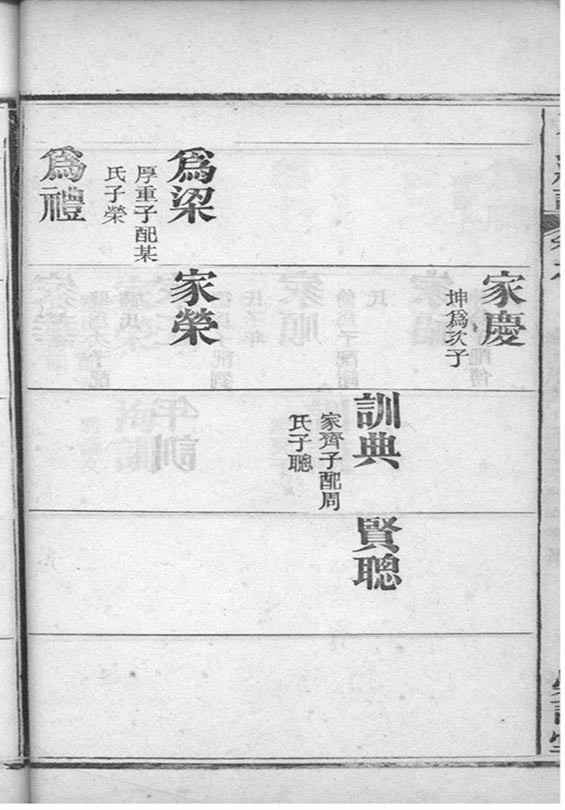 家慶
坤為次子
訓典
家齊子配周
氏子聰
賢聰
為梁
厚重子配某
氏子榮
家榮
為禮